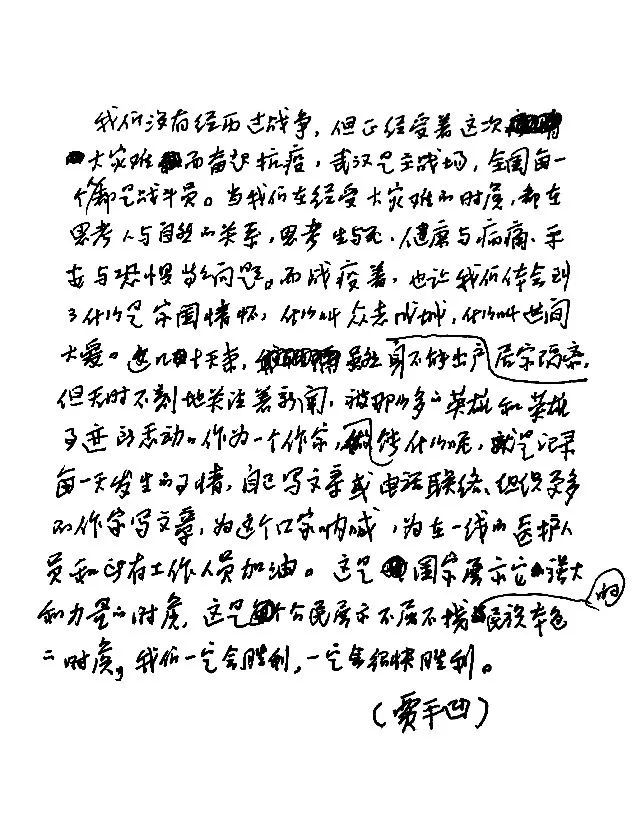 我们没有经历过战争，但正经受着这次
大灾难而奋起抗疫，武汉是主战场，全国每一
个都是战斗员。当我们在经受大灾难的时候，都在
思考人与自然的关系，思考生与死、健康与病痛、平
安与恐惧等等问题。而战疫着，也让我们体会到
了什么是家国情怀，什么叫众志成城，什么叫世间
大爱。这几十天来，虽然身不能出户，居家隔离，
但无时不刻地关注着新闻，被那么多的英雄和英雄
事迹所感动。作为一个作家，能做什么呢，就是记录
每一天发生的事情，自己写文章或电话联络、组织更多
的作家写文章，为这个国家呐喊，为在一线的医护人
员和所有工作人员加油。这是国家展示它的强大
和力量的时候，这是每个公民展示不屈不挠的民族本色
的时候，我们一定会胜利，一定会很快胜利。
（贾平凹）